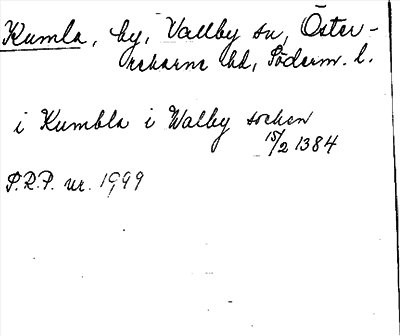 Kumla, by, Vallby sn, Öster-
rekarne hd, Söderm. l.
i Kumbla i Walby sochen
15/2 1384
P.R.P. nr. 1999